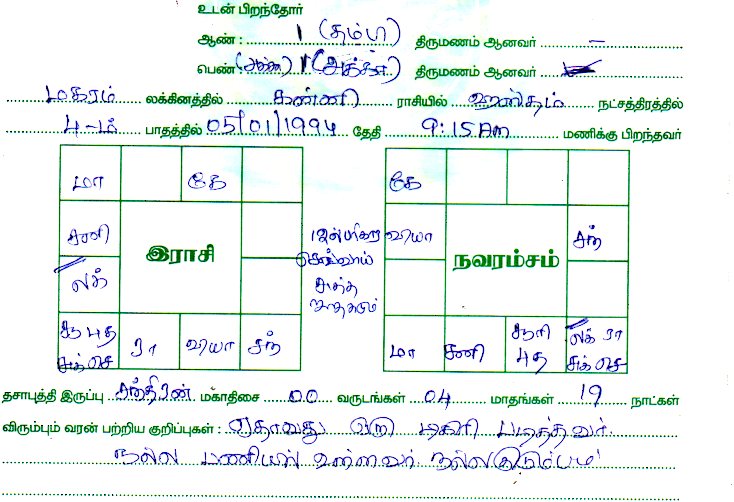 உடன் பிறந்தோர்
ஆண் : 1 (தம்பி) திருமணம் ஆனவர் –
பெண் 1 (அக்கா) திருமணம் ஆனவர்
மகரம் லக்கினத்தில் கன்னி ராசியில் ஹஸ்தம் நட்சத்திரத்தில்
4-ம் பாதத்தில் 05/01/1994 தேதி 9:15 Am மணிக்கு பிறந்தவர்
மா கே
சனி
இராசி
லக்
சூ புத சுக் செ ரா வியா சந்
கே
வியா சந்
நவரம்சம்
மா சனி சூரி புத லக் ரா சுக் செ
தசாபுத்தி இருப்பு சந்திரன் மகாதிசை 00 வருடங்கள் 04 மாதங்கள் 19 நாட்கள்
விரும்பும் வரன் பற்றிய குறிப்புகள் : ஏதாவது ஒரு டிகிரி படித்தவர்
நல்ல பணியில் உள்ளவர் நல்ல குடும்பம்